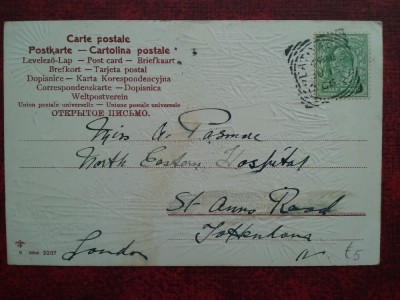 Carte postale
Postkarte – Cartolina postale
Levelező-Lap – Post card – Briefkaart
Brefkort – Tarjeta postal
Dopisnice – Karta Korespondencyjna
Correspondenzkarte – Dopisnica
Weltpostverein
Union postale universelle – Unione postale universale
ОТКРЫТОЕ ПИСЬМО.
Miss A. Pasmore
North Eastern Hospital
St Anns Road
Tottenham
London N.
£5